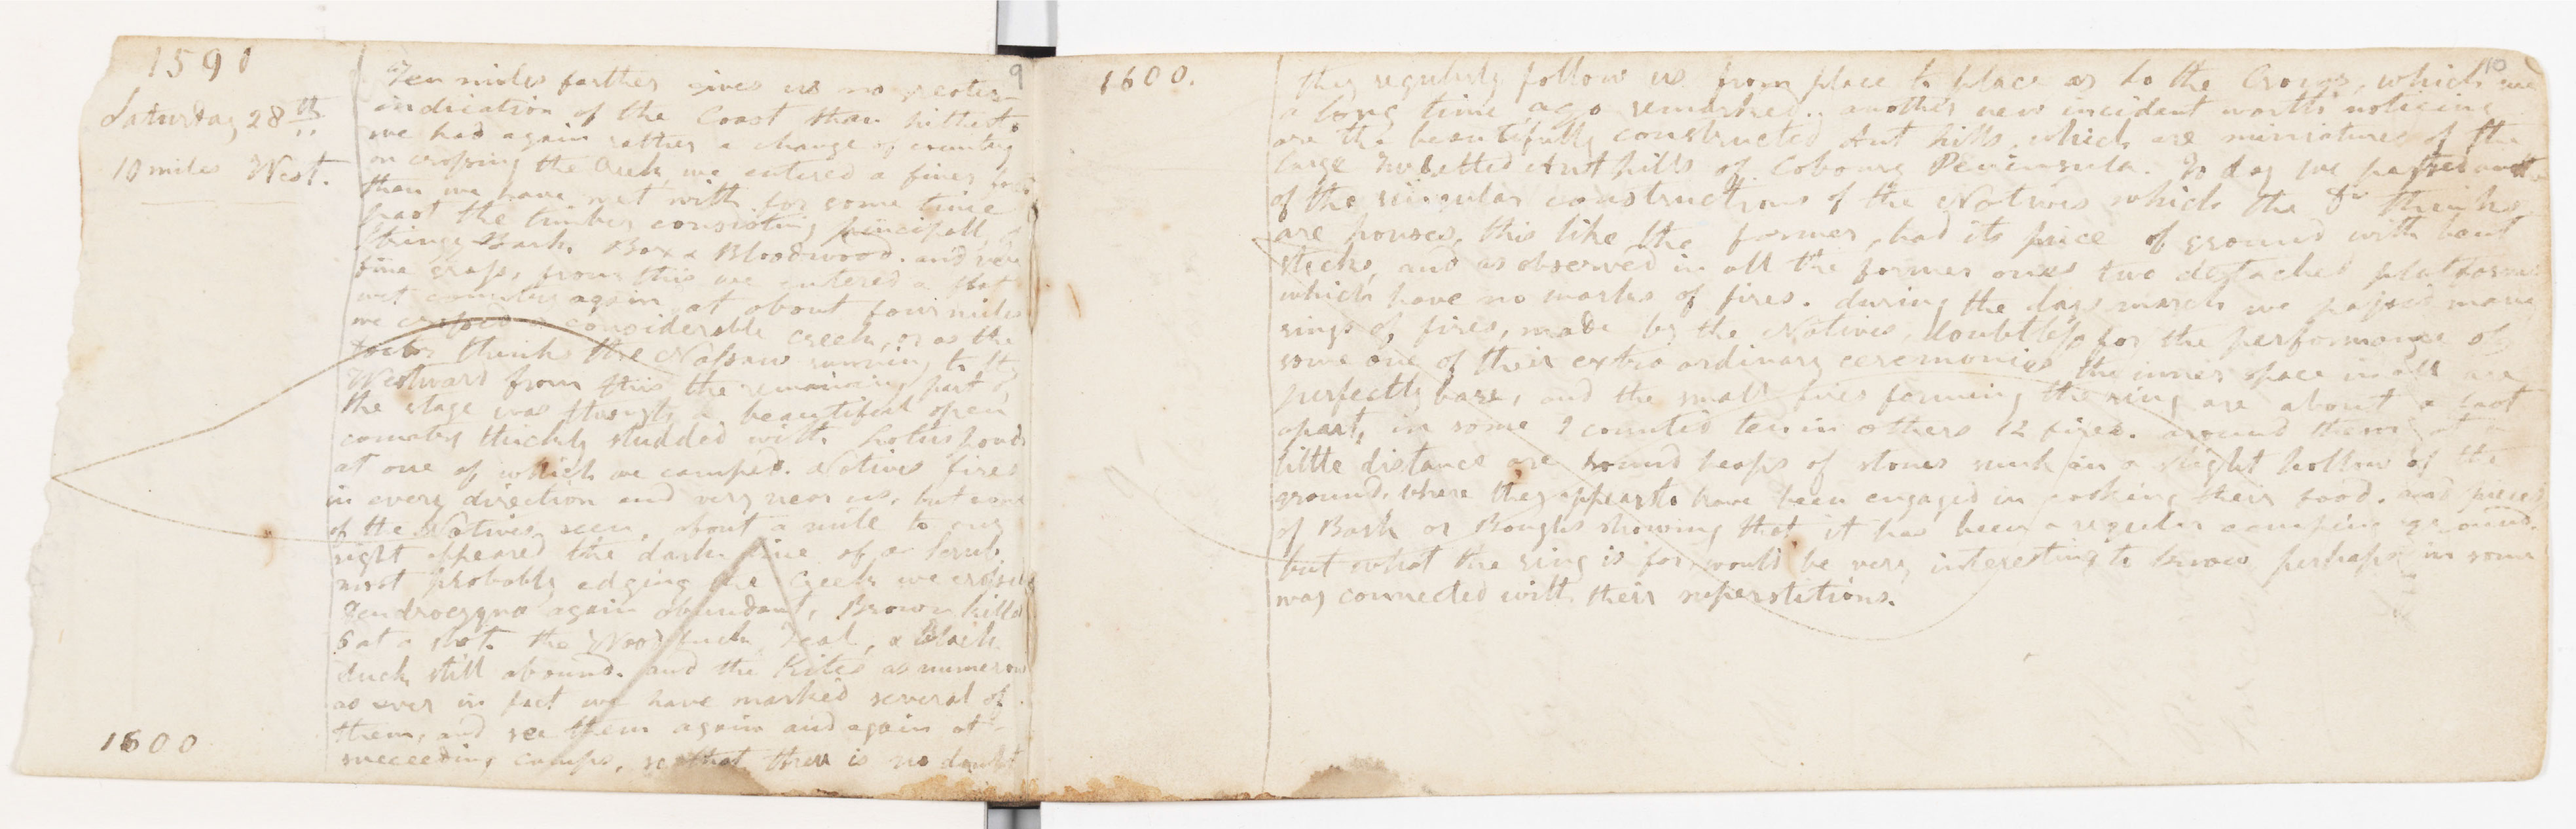 1591
9
Saturday 28th
10 miles West.
Ten miles farther gives us no greater
indication of the Coast than hitherto
we had again rather a change of country
on crossing the Creek we entered a finer
than we have met with for some time
past the timber consisting principally of
Stringy Bark Box & Bloodwood. and very
fine grass, from this we entered a flat
wet country again, at about four miles
we crossed a considerable creek, or as the
Doctor thinks the Nassau running to the
Westward from this the remaining part of
the stage was through a beautiful open
country thickly studded with Lotus ponds
at one of which we camped. Natives fires
in every direction and very near us, but none
of the Natives seen, about a mile to our
right appeared the dark line of a scrub
most probably edging the Creek we crossed
Dendrocygna again abundant, Brown killed
5 at a shot. the Wood duck, Teal, & Black
duck still abound. and the Kites as numerous
as ever in fact we have marked several of
them, and see them again and again at
succeeding camps, so that there is no doubt
1600
1600.
10
they regularly follow us from place to place as to the Crows, which we
a long time ago remarked.. another new incident worth noticing
are the beautifully constructed Ant hills, which are miniatures of the
large turretted Anthills of Cobourg Peninsula. To day we passed another
of the singular constructions of the Natives which the Dr thinks
are houses, this like the former, had its piece of ground with bent
sticks, and as observed in all the former ones two detached platforms
which have no marks of fires. during the days march we passed many
rings of fires, made by the Natives, doubtless for the performance of
some one of their extraordinary ceremonies the inner space in all are
perfectly bare, and the small fires forming the ring are about a foot
apart, in some I counted ten in others 12 fires. around them at a
little distance are round heaps of stones sunk in a slight hollow of the
ground, where they appear to have been engaged in cooking their food. and pieces
of Bark or Boughs showing that it has been a regular camping ground.
but what the ring is for would be very interesting to know perhaps in some
way connected with their superstitions.